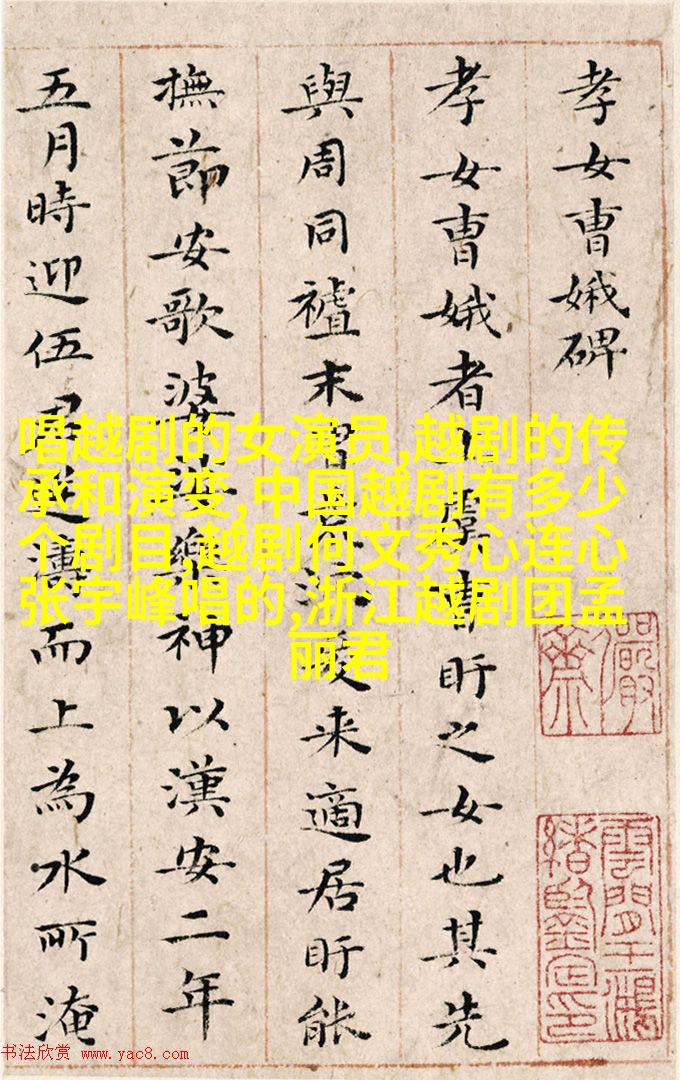 孝女曹娥碑
孝女曹娥者上虞曹盱之女也其先
與周同祖末胄荒沉爰来適居盱能
撫節安歌婆娑樂神以漢安二年
五月時迎伍君逆濤而上為水所淹
唱越剧的女演员,越剧的传
承和演变,中国越剧有多少
个剧目,越剧何文秀心连心
张宇峰唱的,浙江越剧团孟
丽君
儼齋
雲間王鴻
緒鑒定印
书法欣赏 www.yac8.com